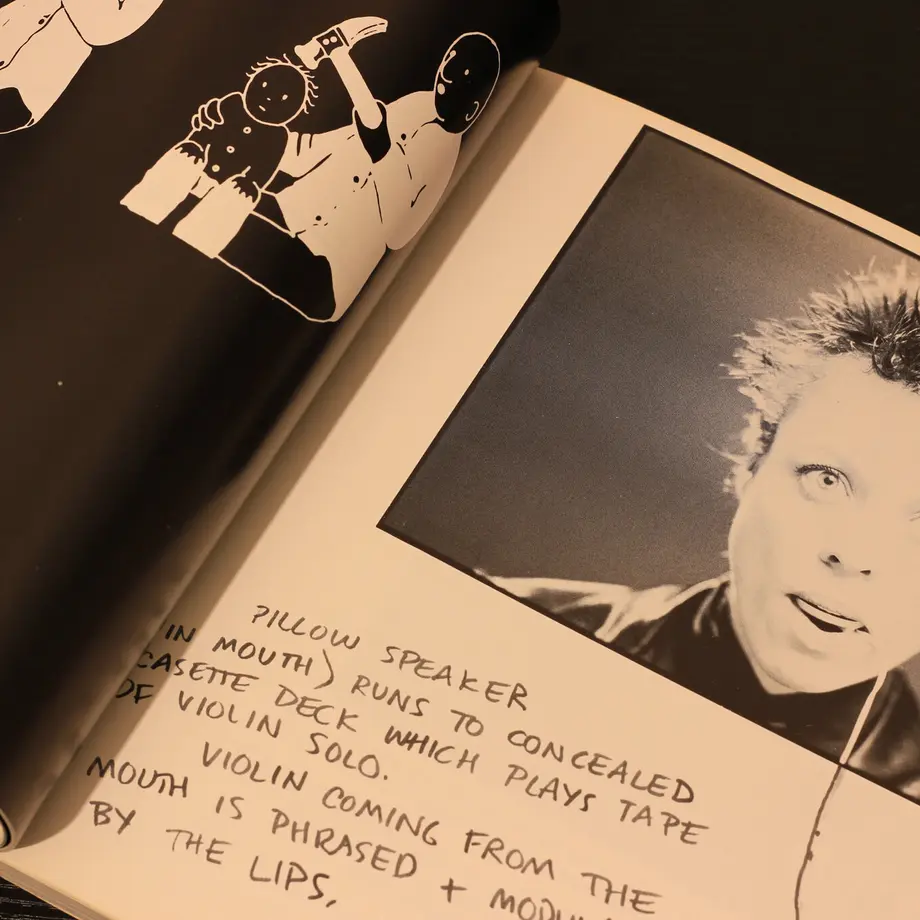 PILLOW SPEAKER
IN MOUTH) RUNS TO CONCEALED
CASETTE DECK WHICH PLAYS TAPE
OF VIOLIN SOLO.
VIOLIN COMING FROM THE
MOUTH IS PHRASED +
BY THE LIPS,